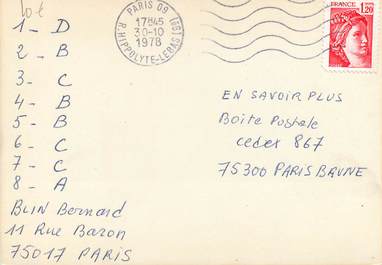 10€
PARIS 09 (9E)
17H45
30-10
1978
R.HIPPOLYTE-LEBAS
FRANCE
1,20
1 - D
2 - B
3 - C
4 - B
5 - B
6 - C
7 - C
8 - A
BLIN Bernard
11 Rue Baron
75017 PARIS
EN SAVOIR PLUS
Boîte Postale
cedex 867
75300 PARIS BRUNE